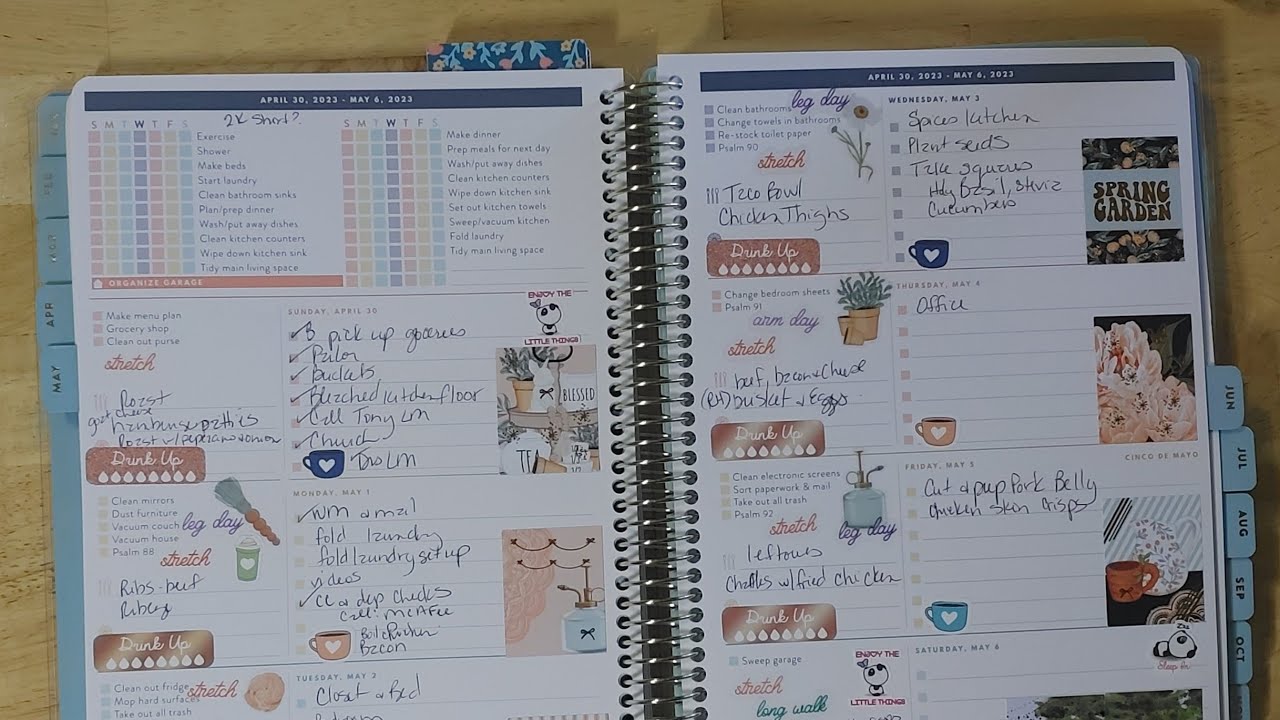 APRIL 30, 2023 - MAY 6, 2023
S M T W T F S
Exercise
Shower
Make beds
Start laundry
Clean bathroom sinks
Plan/prep dinner
Wash/put away dishes
Clean kitchen counters
Wipe down kitchen sink
Tidy main living space
ORGANIZE GARAGE
S M T W T F S
Make dinner
Prep meals for next day
Wash/put away dishes
Clean kitchen counters
Wipe down kitchen sink
Set out kitchen towels
Sweep/vacuum kitchen
Fold laundry
Tidy main living space
Make menu plan
Grocery shop
Clean out purse
stretch
Roast
goat cheese
hamburger patties
Roast w/
Drink Up
SUNDAY, APRIL 30
ENJOY THE
LITTLE THINGS
pick up groceries
buckets
Bleached kitchen floor
Call Tony LM
Church
LM
BLESSED
TEA
Clean mirrors
Dust furniture
Vacuum couch
Vacuum house
Psalm 88
leg day
stretch
Ribs-beef
Ribeye
Drink Up
MONDAY, MAY 1
fold laundry
fold laundry set up
videos
CC & dep checks
Call: McAfee
Bacon
Clean out fridge
Mop hard surfaces
Take out all trash
stretch
TUESDAY, MAY 2
Closet & Bed
APRIL 30, 2023 - MAY 6, 2023
Clean bathrooms
Change towels in bathrooms
Re-stock toilet paper
Psalm 90
leg day
stretch
Taco Bowl
Chicken Thighs
Drink Up
WEDNESDAY, MAY 3
Spices kitchen
Plant seeds
Take squares
Holy Basil, stevia
Cucumbers
SPRING
GARDEN
Change bedroom sheets
Psalm 91
arm day
stretch
beef, bacon & cheese
brisket & Eggs
Drink Up
THURSDAY, MAY 4
Office
Clean electronic screens
Sort paperwork & mail
Take out all trash
Psalm 92
stretch
leg day
leftovers
Chaffles w/fried chicken
Drink Up
FRIDAY, MAY 5
CINCO DE MAYO
Cut & prep Pork Belly
Chicken Skin Crisps
Sweep garage
stretch
long walk
ENJOY THE
LITTLE THINGS
SATURDAY, MAY 6
Sleep In
APR
MAY
JUN
JUL
AUG
SEP
OCT